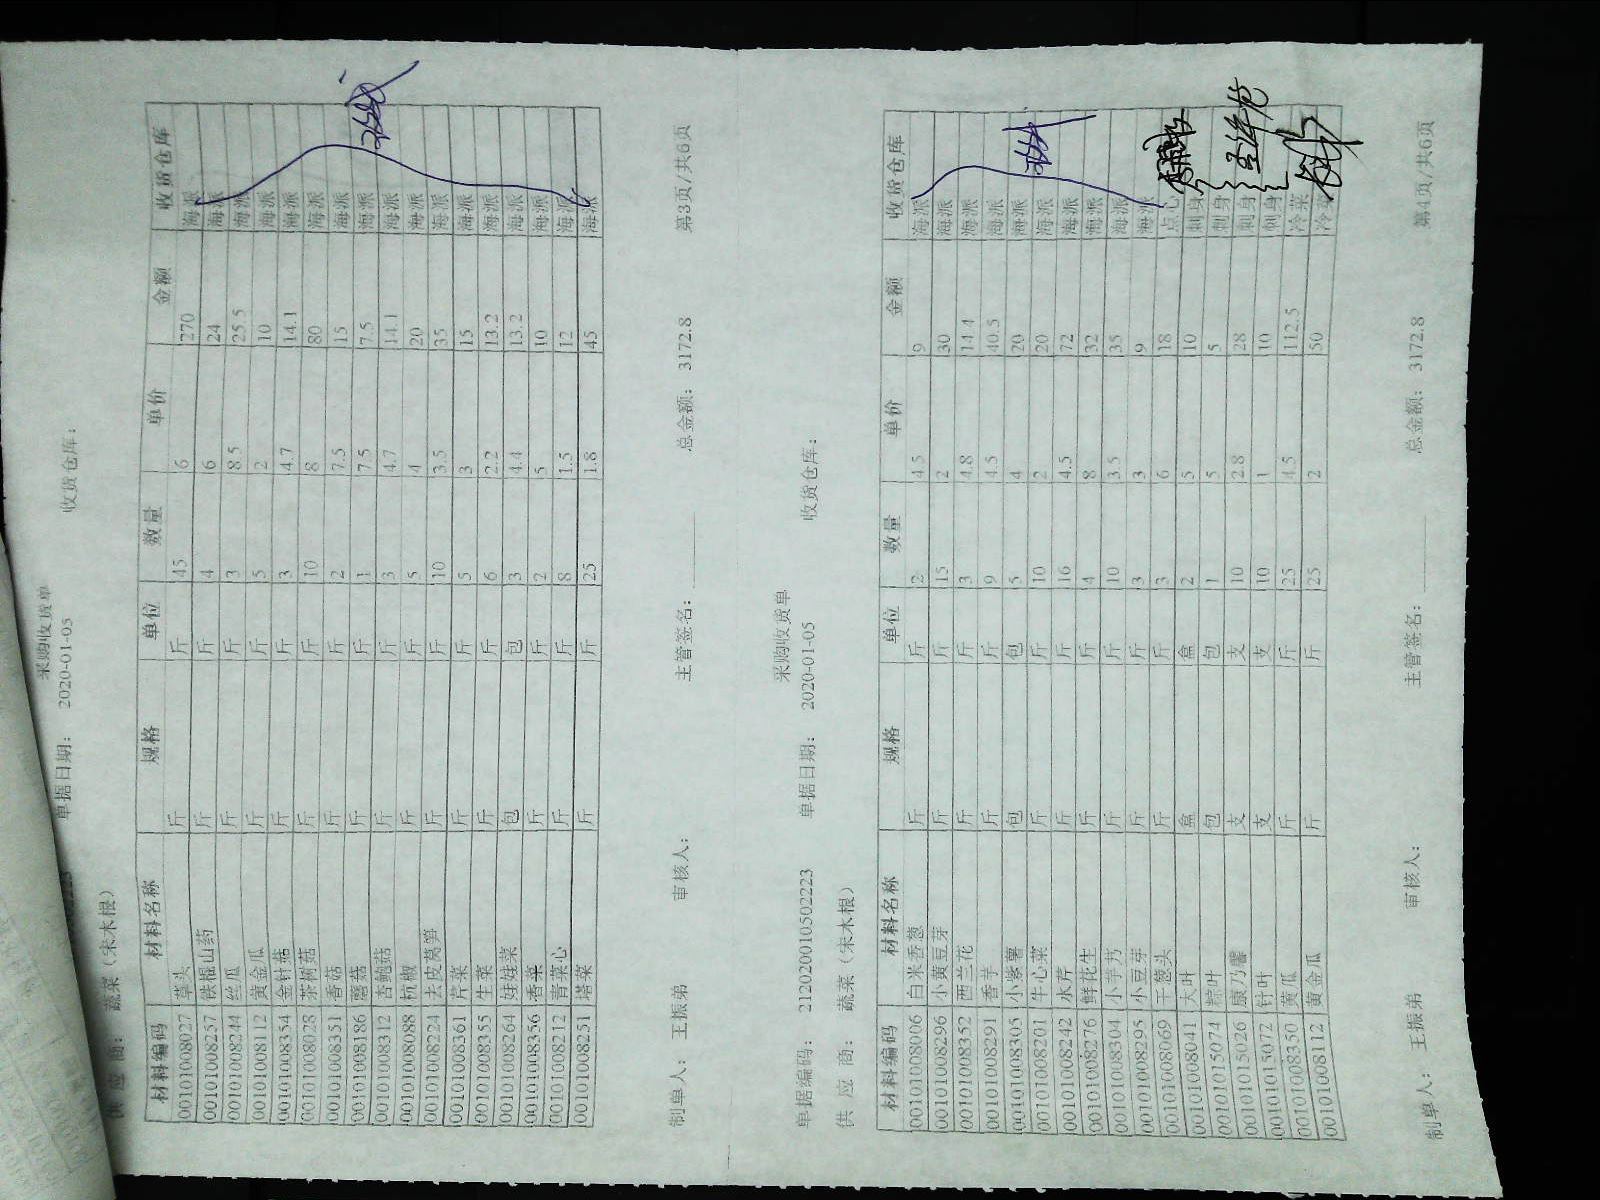 采购收货单
单据日期： 2020-01-05 收货仓库：
供 应 商： 蔬菜（宋木根）
材料编码 材料名称 规格 单位 数量 单价 金额 收货仓库
00101008027 草头 斤 斤 45 6 270 海派
00101008257 铁棍山药 斤 斤 4 6 24 海派
00101008244 丝瓜 斤 斤 3 8.5 25.5 海派
00101008112 黄金瓜 斤 斤 5 2 10 海派
00101008354 金针菇 斤 斤 3 4.7 14.1 海派
00101008028 茶树菇 斤 斤 10 8 80 海派
00101008351 香菇 斤 斤 2 7.5 15 海派
00101008186 蘑菇 斤 斤 1 7.5 7.5 海派
00101008312 杏鲍菇 斤 斤 3 4.7 14.1 海派
00101008088 杭椒 斤 斤 5 4 20 海派
00101008224 去皮莴笋 斤 斤 10 3.5 35 海派
00101008361 芹菜 斤 斤 5 3 15 海派
00101008355 生菜 斤 斤 6 2.2 13.2 海派
00101008264 娃娃菜 包 包 3 4.4 13.2 海派
00101008356 香菜 斤 斤 2 5 10 海派
00101008212 青菜心 斤 斤 8 1.5 12 海派
00101008251 塔菜 斤 斤 25 1.8 45 海派
制单人： 王振弟 审核人： 主管签名： 总金额： 3172.8 第3页/共6页
采购收货单
单据编码： 21202001050​2223 单据日期： 2020-01-05 收货仓库：
供 应 商： 蔬菜（宋木根）
材料编码 材料名称 规格 单位 数量 单价 金额 收货仓库
00101008006 白米香葱 斤 斤 2 4.5 9 海派
00101008296 小黄豆芽 斤 斤 15 2 30 海派
00101008352 西兰花 斤 斤 3 4.8 14.4 海派
00101008291 香芋 斤 斤 9 4.5 40.5 海派
00101008305 小紫薯 包 包 5 4 20 海派
00101008201 牛心菜 斤 斤 10 2 20 海派
00101008242 水芹 斤 斤 16 4.5 72 海派
00101008276 鲜花生 斤 斤 4 8 32 海派
00101008304 小芋艿 斤 斤 10 3.5 35 海派
00101008295 小豆芽 斤 斤 3 3 9 海派
00101008069 干葱头 斤 斤 3 6 18 点心
00101008041 大叶 盒 盒 2 5 10 刺身
00101015074 粽叶 包 包 1 5 5 刺身
00101015026 康乃馨 支 支 10 2.8 28 刺身
00101015072 针叶 支 支 10 1 10 刺身
00101008350 黄瓜 斤 斤 25 4.5 112.5 冷菜
00101008112 黄金瓜 斤 斤 25 2 50 冷菜
制单人： 王振弟 审核人： 主管签名： 总金额： 3172.8 第4页/共6页